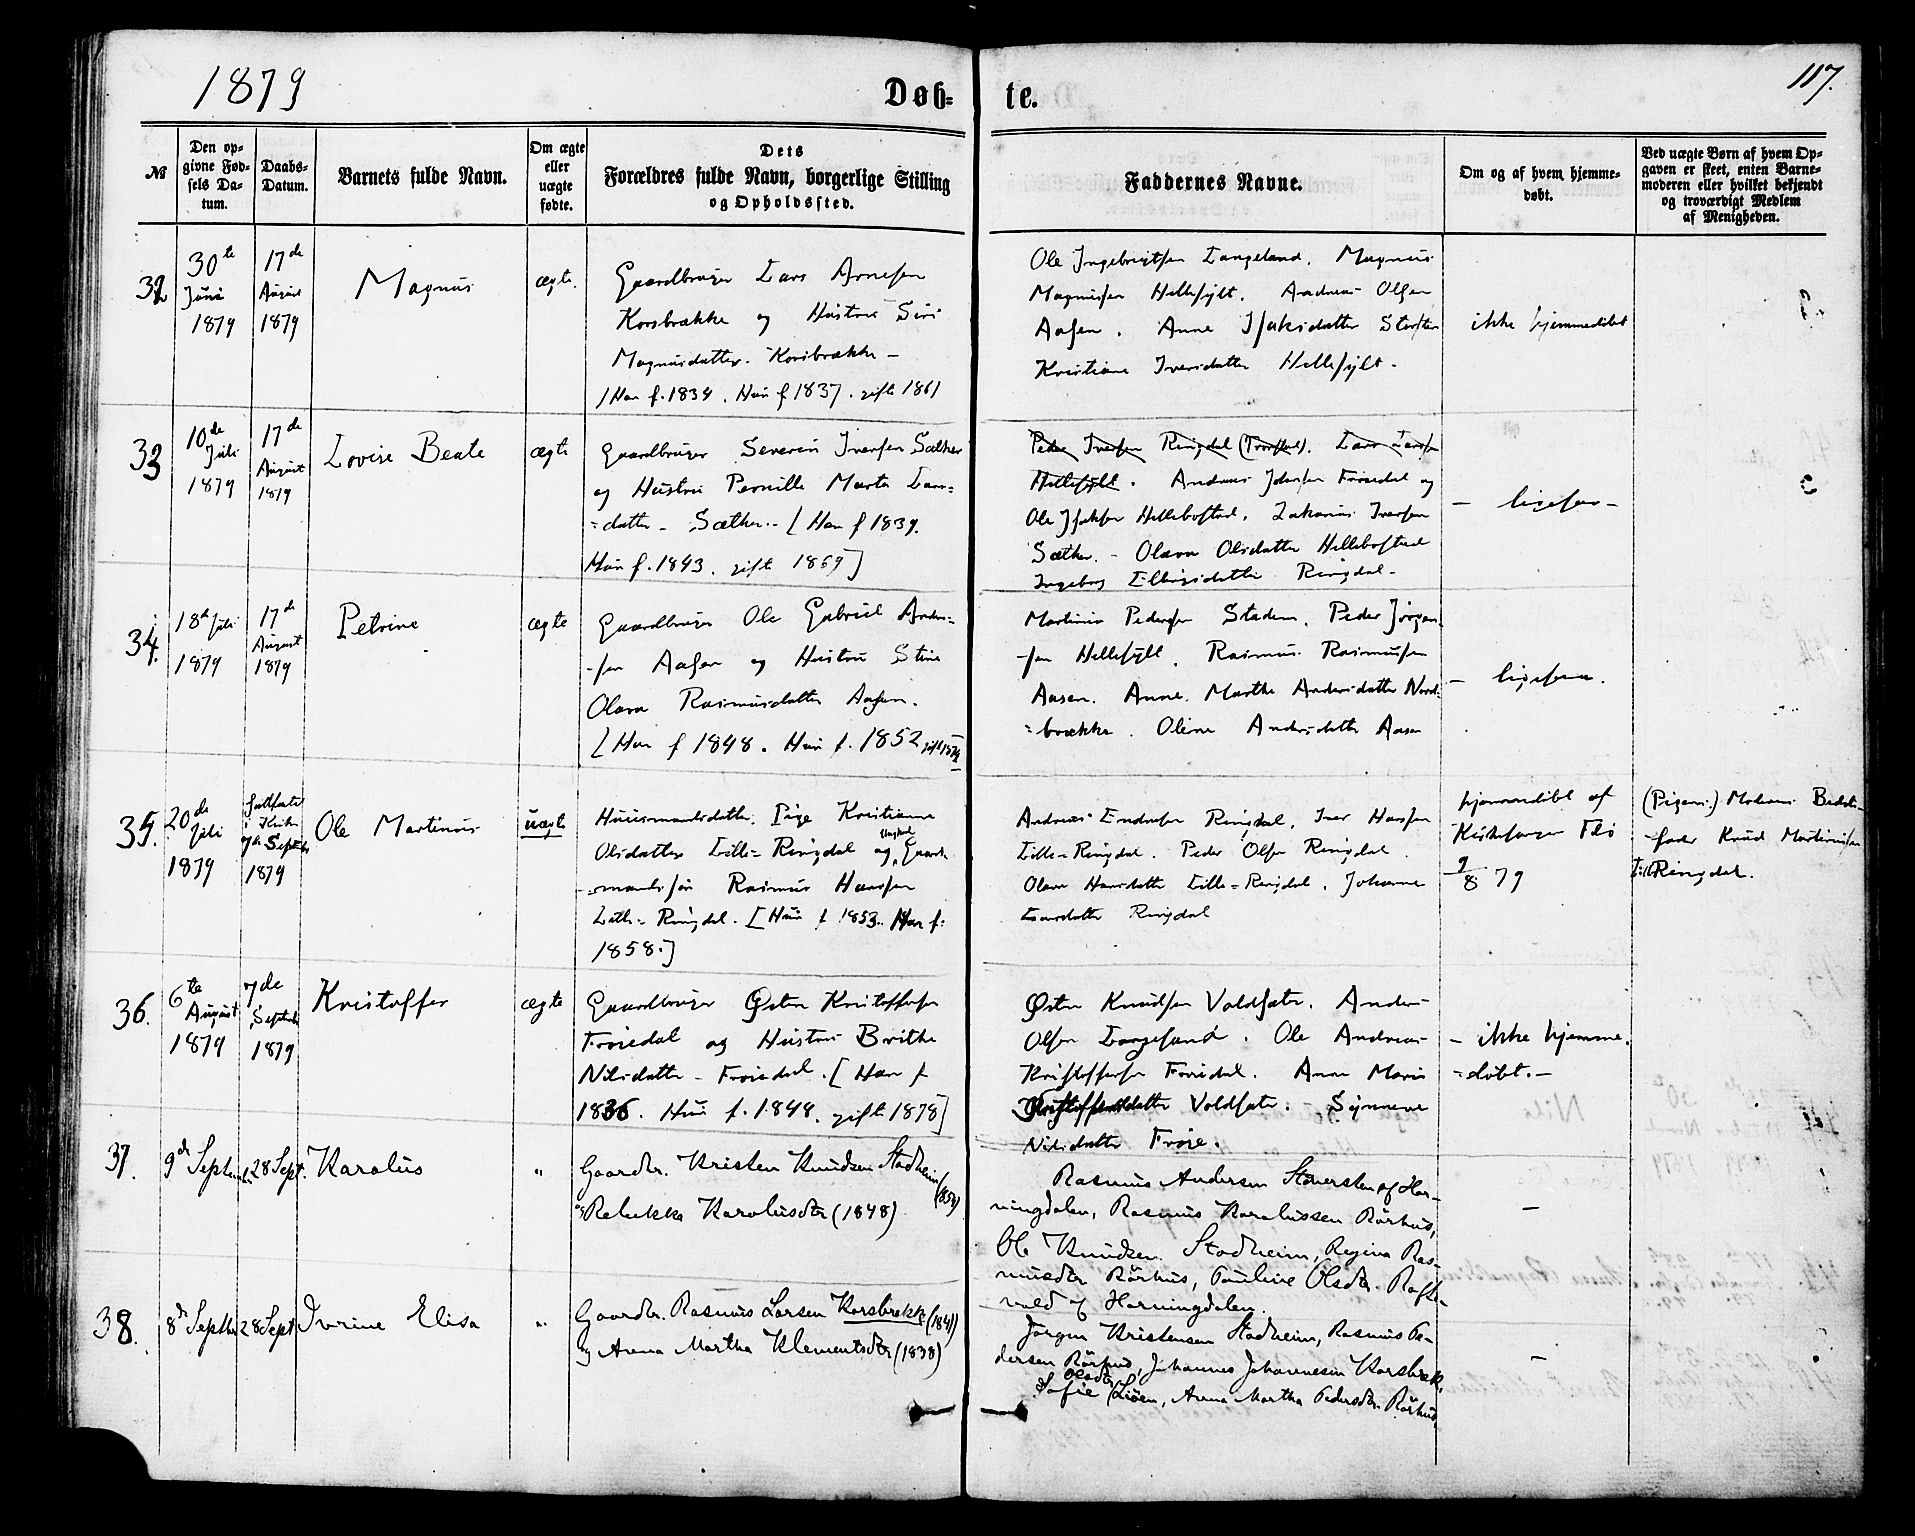 1879
Døb-
te.
117.
№
Den op-
givne Fød-
sels Da-
tum.
Daabs-
Datum.
Barnets fulde Navn.
Om ægte
eller
uægte
fødte.
Dets
Forældres fulde Navn, borgerlige Stilling
og Opholdssted.
Faddernes Navne.
Om og af hvem hjemme-
døbt.
Ved uægte Børn af hvem Op-
gaven er skeet, enten Barne-
moderen eller hvilket bekjendt
og troværdigt Medlem
af Menigheden.
32
30te
Juni
1879
17de
August
1879
Magnus
ægte.
Gaardbruger Lars Arnesen
Korsbrække og Hustru Siri
Magnusdatter. Korsbrække -
/Han f. 1834. Hun f 1837. gift 1861
Ole Ingebrigtsen Langeland. Magnus
Magnusen Hellesylt. Andreas Olsen
Aasen. Anne Isaksdatter
Kristiane Iversdatter Hellesylt.
ikke hjemmedøbt
33
10de
Juli
1879
17de
August
1879
Lovise Beate
ægte
Gaardbruger Severin Iversen Sæther
og Hustru Pernille Marta Lars=
=datter - Sæther.- [Han f 1839.
Hun f. 1843. gift 1869]
Peder Iversen Ringdal Lars Larsen
Hellesylt. Andreas Frøisdal og
Ole Isaksen Hellebostad. Zakarias Iversen
Sæther. - Olava Olsdatter Hellebostad
Ingeborg Ringdal-
- ligesaa -
34.
18de Juli
1879
17de
August
1879
Petrine
ægte
Gaardbruger Ole Gabriel Anders-
-sen Aasen og Hustru Stine
Olava Rasmusdatter Aasen.
[Han f 1848. Hun f. 1852 gift 1874
Martinus Pedersen Stadem. Peder Jørgen-
-sen Hellesylt. Rasmus Rasmusen
Aasen. Anne Marthe Andersdatter Nord-
=brække. Oline Andersdatter Aasen
- ligesaa.
35.
20de
Juli
1879
i Kirken
7de Septbr
1879
Ole Martinus
uægte
Huusmandsdatter. Pige Kristianne
Olsdatter Lille=Ringdal og Ungkarl Gaard-
-mandssøn Rasmus Hansen
Lille=Ringdal. [Hun f 1853. Han f.
1858.]
Andreas Endresen Ringdal. Iver Hansen
Lille=Ringdal. Peder Olsen Ringdal.
Olava Hansdatter Lille=Ringdal. Johanne
Larsdatter Ringdal
hjemmedøbt af
Kirkesanger Flo
9/8 79
(Pigens.) Moders
-fader Knud Martinusen
Lille Ringdal.
36.
6te
August
1879
7de
Septemb
1879
Kristoffer
ægte
Gaardbruger Østen Kristoffersen
Frøisdal og Hustru Brithe
Nilsdatter - Frøisdal. [Han f
1836. Hun f. 1848. gift 1878]
Østen Knudsen Voldsæter. Anders
Olsen Langeland. Ole Andreas
Kristoffersen Frøisdal. Anne Marie
Kristoffersdatter Voldsæter. Synneve
Nilsdatter Frøise.
- ikke hjemme.
=døbt.-
37.
9de Septembr
28 Sept.
Karolus
"
Gaardbr. Kristen Knudsen Stadheim (1854)
og Rebekka Karolusdtr (1848)
Rasmus Andersen af Hor-
ningdalen, Rasmus Karolussen Rörhus,
Ole Knudsen Stadheim, Regina Ras-
musdtr Rörhus, Pauline Olsdtr.
af Horningdalen.
-
38.
8de Septbr
28 Sept
Ivrine Elisa
"
Gaardbr. Rasmus Larsen Korsbrekk (1841)
og Anna Martha Klementsdtr (1838)
Jørgen Kristensen Stadheim, Rasmus Pe-
dersen Rörhus, Johannes Johannesen Korsbrek,
Sofie Olsdtr Liøen, Anna Martha Pedersdtr. Rörhus
-